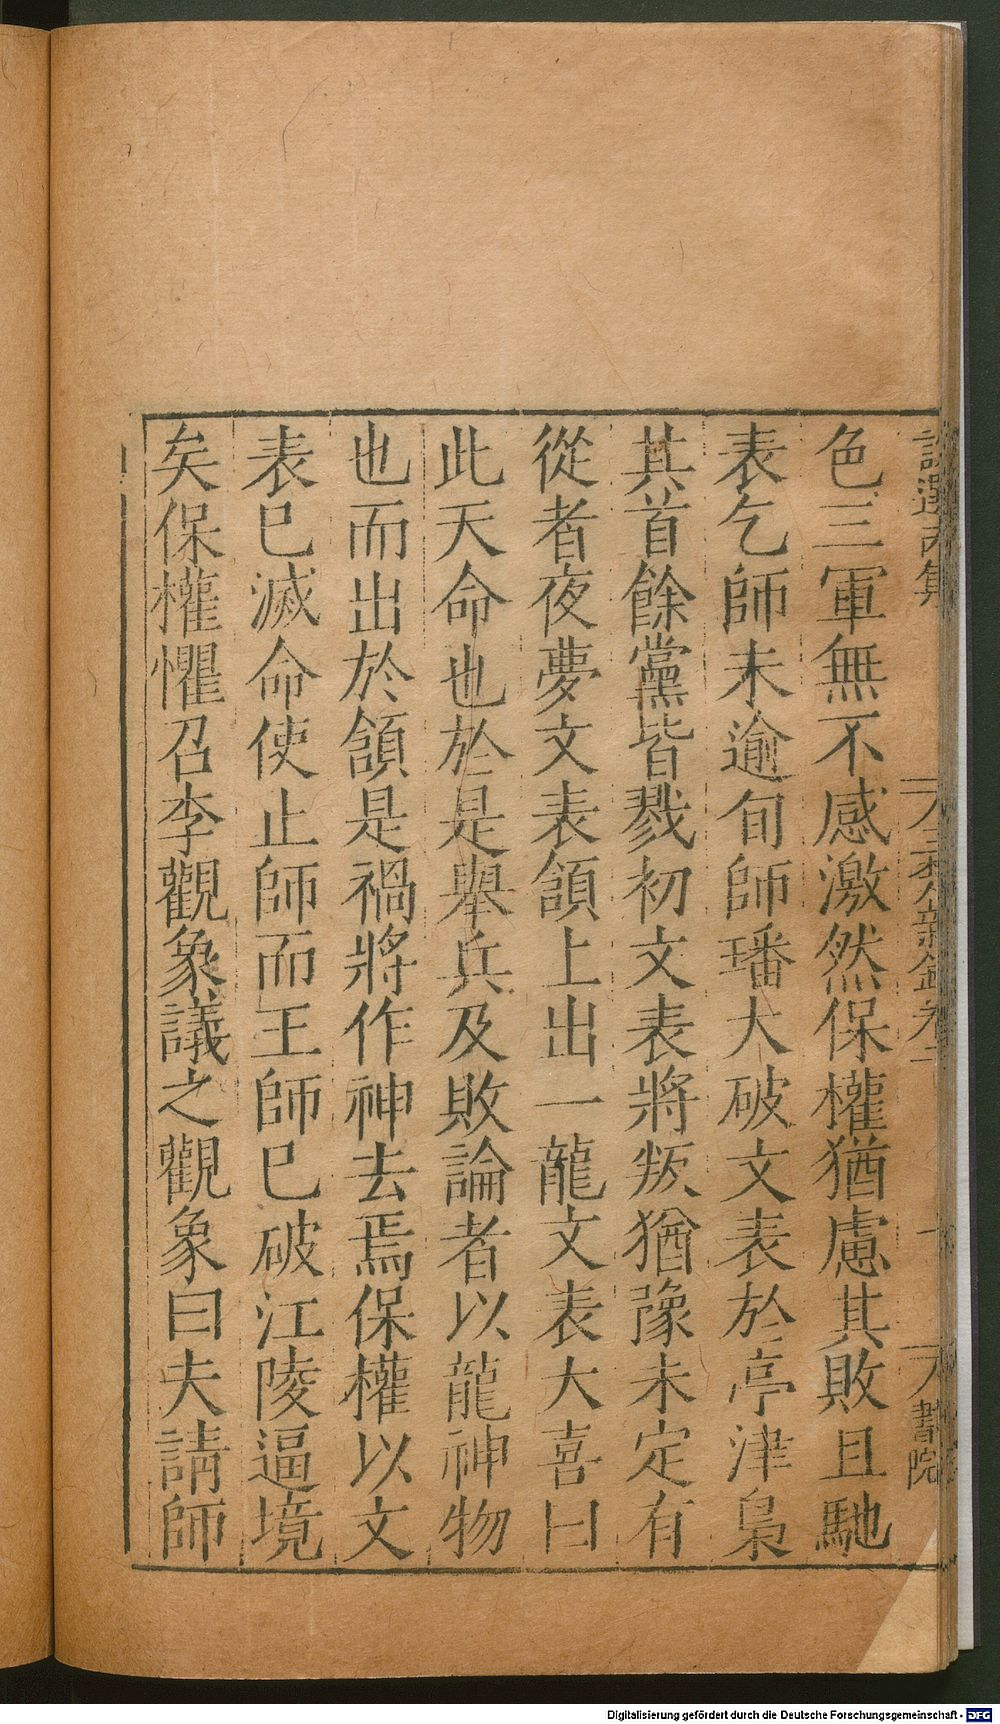 色三軍無不感激然保權猶慮其敗且馳
表乞師未逾旬師璠大破文表於亭津梟
其首餘黨皆戮初文表將叛猶豫未定有
從者夜夢文表頷上出一龍文表大喜曰
此天命也於是舉兵及敗論者以龍神物
也而出於頷是禍將作神去焉保權以文
表已滅命使止師而王師已破江陵逼境
矣保權懼召李觀象議之觀象曰夫請師
書院
Digitalisierung gefördert durch die Deutsche Forschungsgemeinschaft - DFG